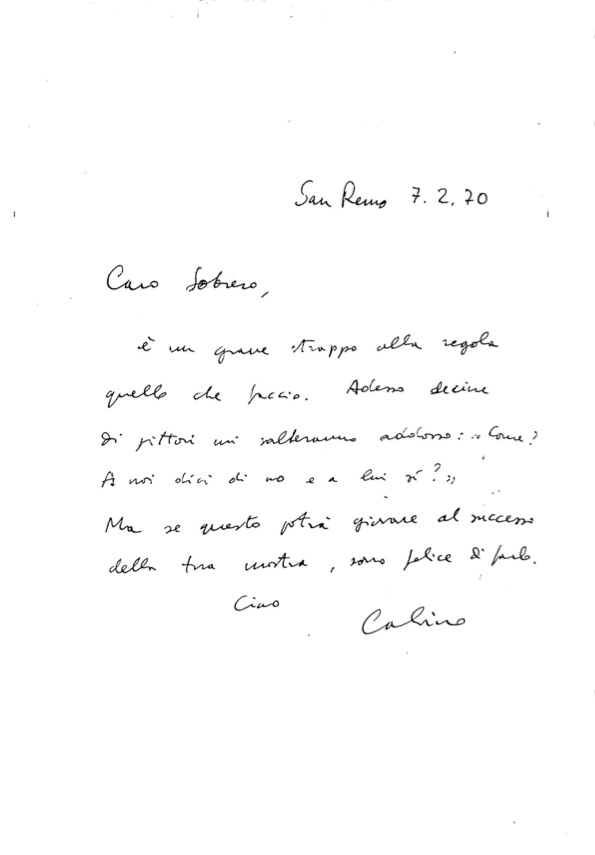 San Remo 7.2.70
Caro Sobrero,
è un grave strappo alla regola
quello che faccio. Adesso decine
di pittori mi salteranno addosso: «Come?
A noi dici di no e a lui sí?»
Ma se questo potrà giovare al successo
della tua mostra, sono felice di farlo.
Ciao
Calvino